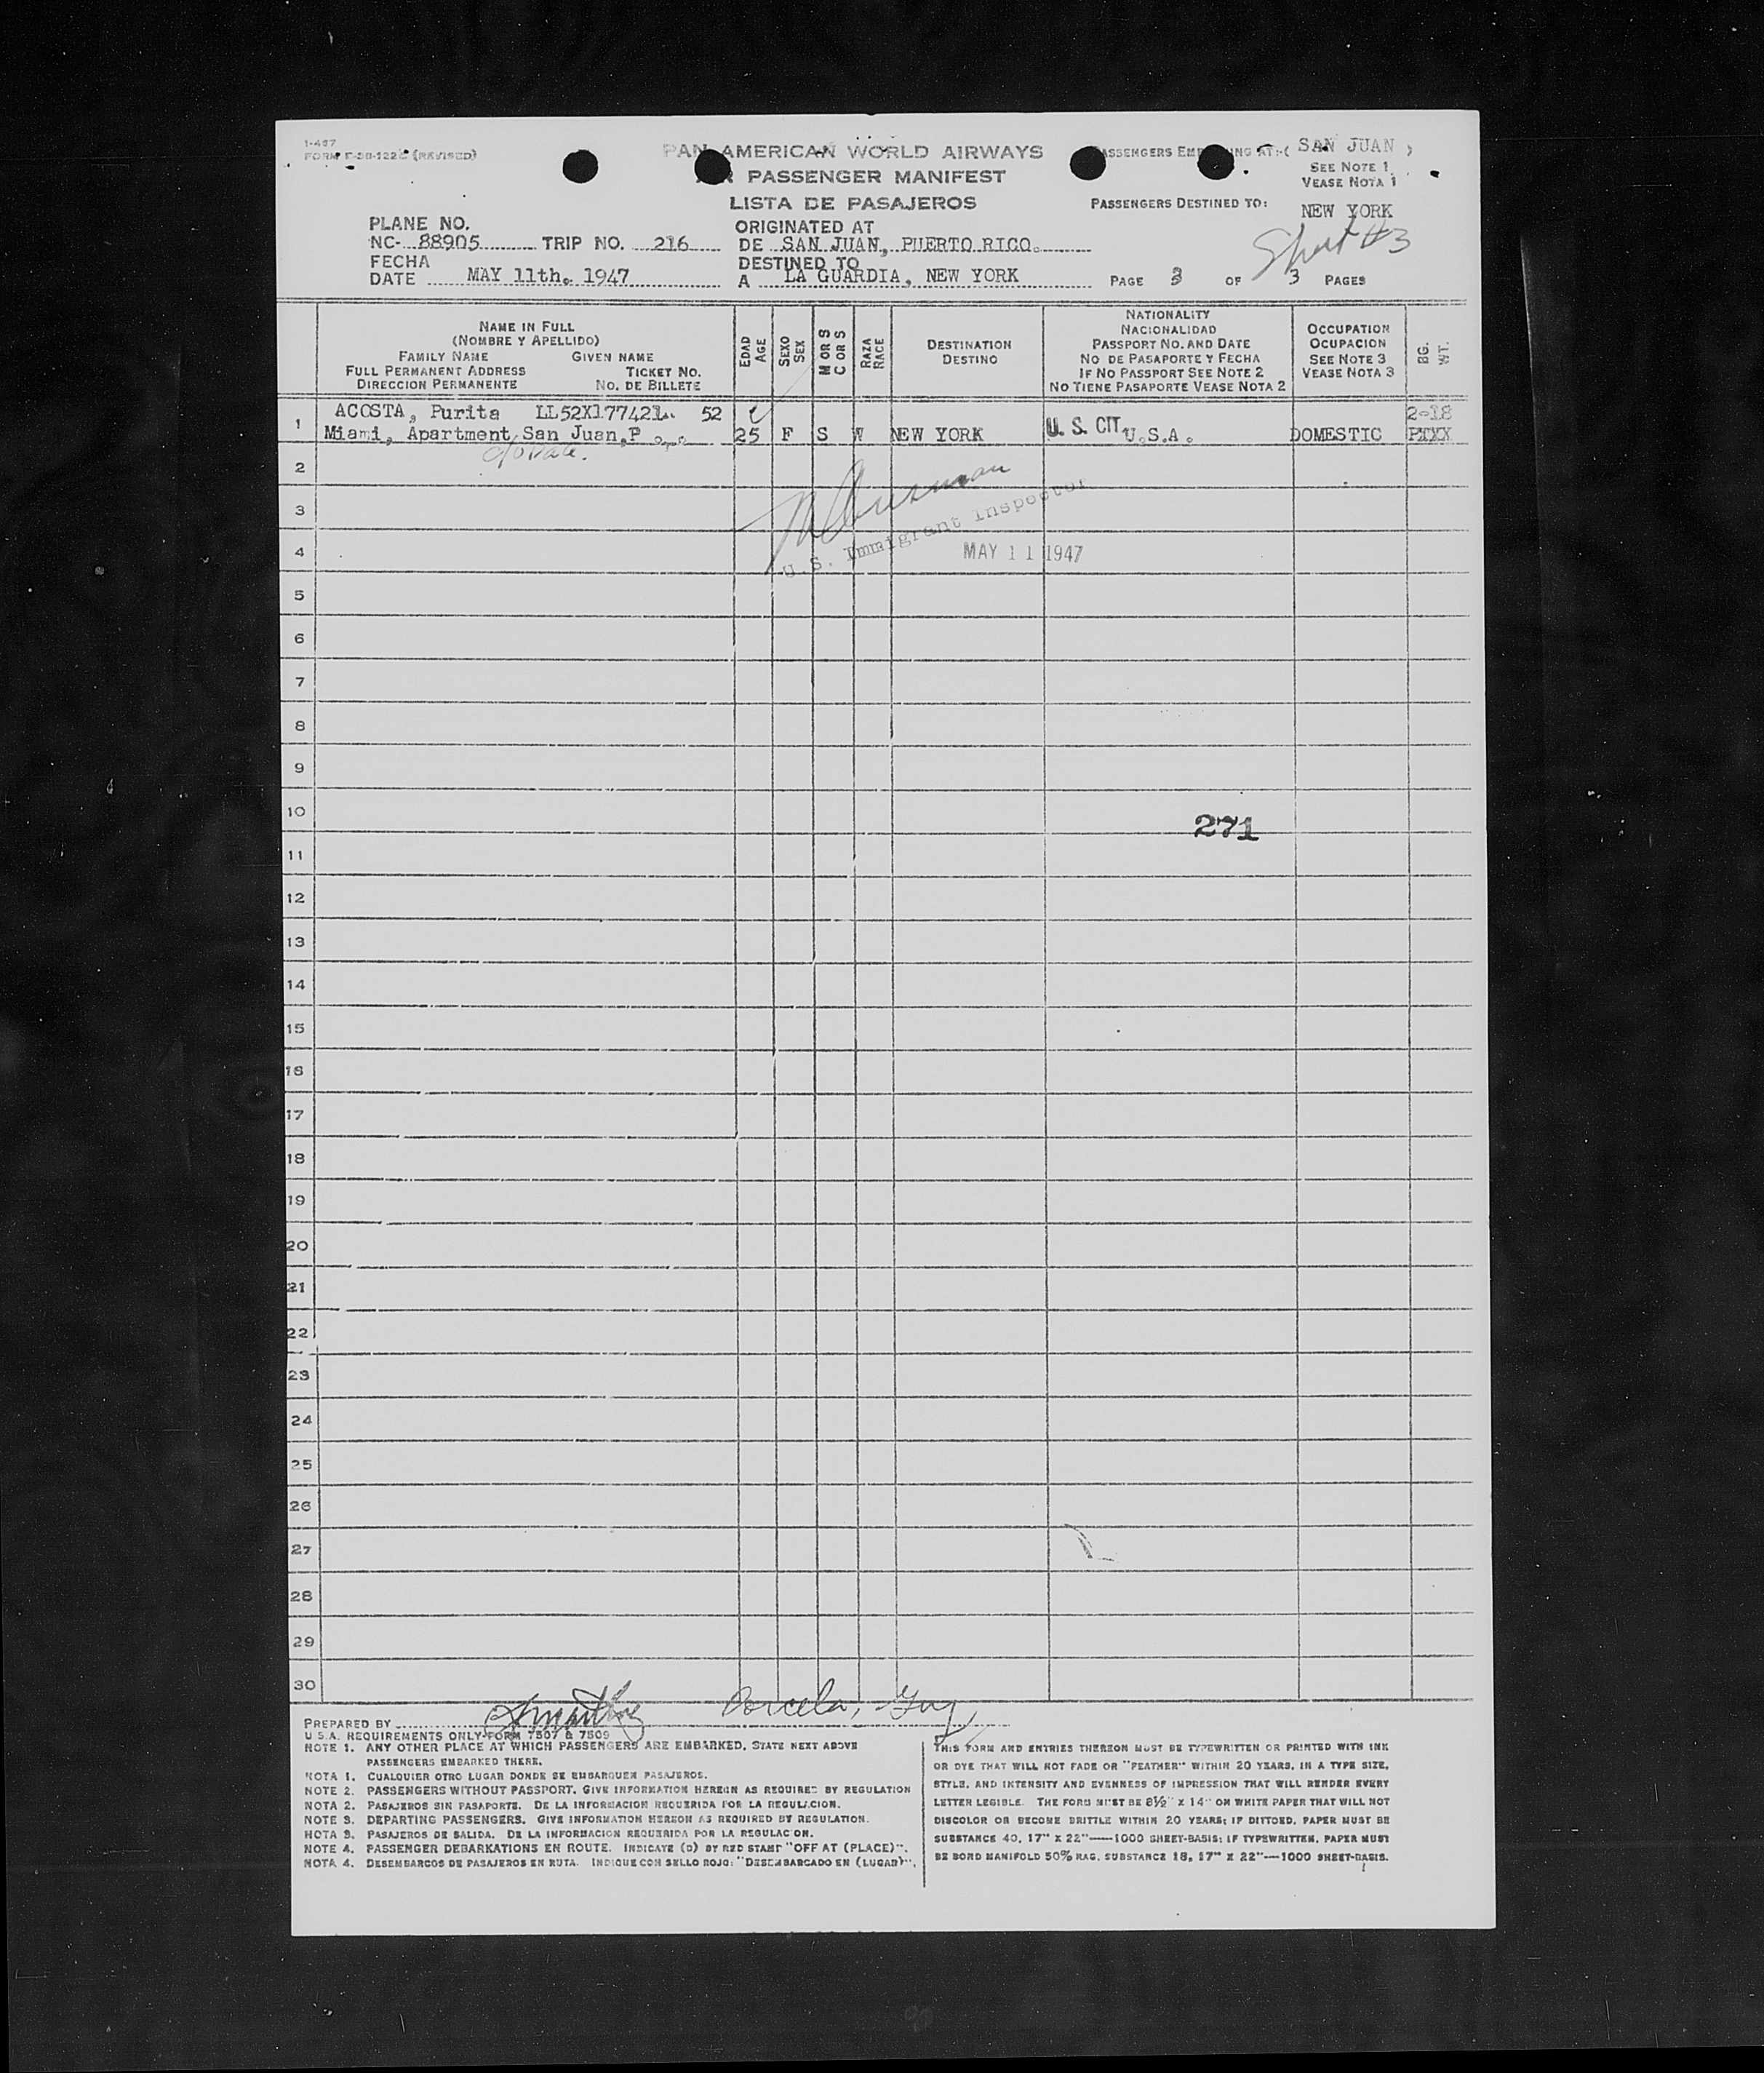 I-467
FORM E-50-122C (REVISED)
PAN AMERICAN WORLD AIRWAYS
PASSENGER MANIFEST
LISTA DE PASAJEROS
PASSENGERS EMB ING AT:-( SAN JUAN )
SEE NOTE 1
VEASE NOTA 1
PASSENGERS DESTINED TO:
NEW YORK
Sheet #3
PLANE NO.
NC- 88905 TRIP NO. 216
FECHA
DATE MAY 11th. 1947
ORIGINATED AT
DE SAN JUAN, PUERTO RICO.
DESTINED TO
A LA GUARDIA, NEW YORK
PAGE 3 OF 3 PAGES
NAME IN FULL
(NOMBRE Y APELLIDO)
FAMILY NAME GIVEN NAME
FULL PERMANENT ADDRESS TICKET NO.
DIRECCION PERMANENTE NO. DE BILLETE
EDAD
AGE
SEXO
SEX
M OR S
C OR S
RAZA
RACE
DESTINATION
DESTINO
NATIONALITY
NACIONALIDAD
PASSPORT NO. AND DATE
NO DE PASAPORTE Y FECHA
IF NO PASSPORT SEE NOTE 2
NO TIENE PASAPORTE VEASE NOTA 2
OCCUPATION
OCUPACION
SEE NOTE 3
VEASE NOTA 3
BG.
WT.
1 ACOSTA, Purita LL52X177421. 52 2-18
Miami, Apartment, San Juan, P 25 F S W NEW YORK U. S. CIT. U.S.A. DOMESTIC
2
3
U.S. Immigrant Inspector
4 MAY 11 1947
5
6
7
8
9
10
271
11
12
13
14
15
16
17
18
19
20
21
22
23
24
25
26
27
28
29
30
PREPARED BY
U S.A. REQUIREMENTS ONLY-FORM 7507 & 7509
NOTE 1. ANY OTHER PLACE AT WHICH PASSENGERS ARE EMBARKED, STATE NEXT ABOVE
PASSENGERS EMBARKED THERE.
NOTA 1. CUALQUIER OTRO LUGAR DONDE SE EMBARQUEN PASAJEROS.
NOTE 2. PASSENGERS WITHOUT PASSPORT. GIVE INFORMATION HEREON AS REQUIRED BY REGULATION
NOTA 2. PASAJEROS SIN PASAPORTE. DE LA INFORMACION REQUERIDA POR LA REGULACION.
NOTE 3. DEPARTING PASSENGERS. GIVE INFORMATION HEREON AS REQUIRED BY REGULATION.
NOTA 3. PASAJEROS DE SALIDA. DE LA INFORMACION REQUERIDA POR LA REGULACION.
NOTE 4. PASSENGER DEBARKATIONS EN ROUTE. INDICATE (D) BY RED STAMP "OFF AT (PLACE)".
NOTA 4. DESEMBARCOS DE PASAJEROS EN RUTA. INDIQUE CON SELLO ROJO: "DESEMBARCADO EN (LUGAR)".
THIS FORM AND ENTRIES THEREON MUST BE TYPEWRITTEN OR PRINTED WITH INK
OR DYE THAT WILL NOT FADE OR "FEATHER" WITHIN 20 YEARS, IN A TYPE SIZE,
STYLE, AND INTENSITY AND EVENNESS OF IMPRESSION THAT WILL RENDER EVERY
LETTER LEGIBLE. THE FORM MUST BE 8½" X 14" ON WHITE PAPER THAT WILL NOT
DISCOLOR OR BECOME BRITTLE WITHIN 20 YEARS; IF DITTOED, PAPER MUST BE
SUBSTANCE 40, 17" X 22"—1000 SHEET-BASIS; IF TYPEWRITTEN, PAPER MUST
BE BOND MANIFOLD 50% RAG, SUBSTANCE 18, 17" X 22"—1000 SHEET-BASIS.